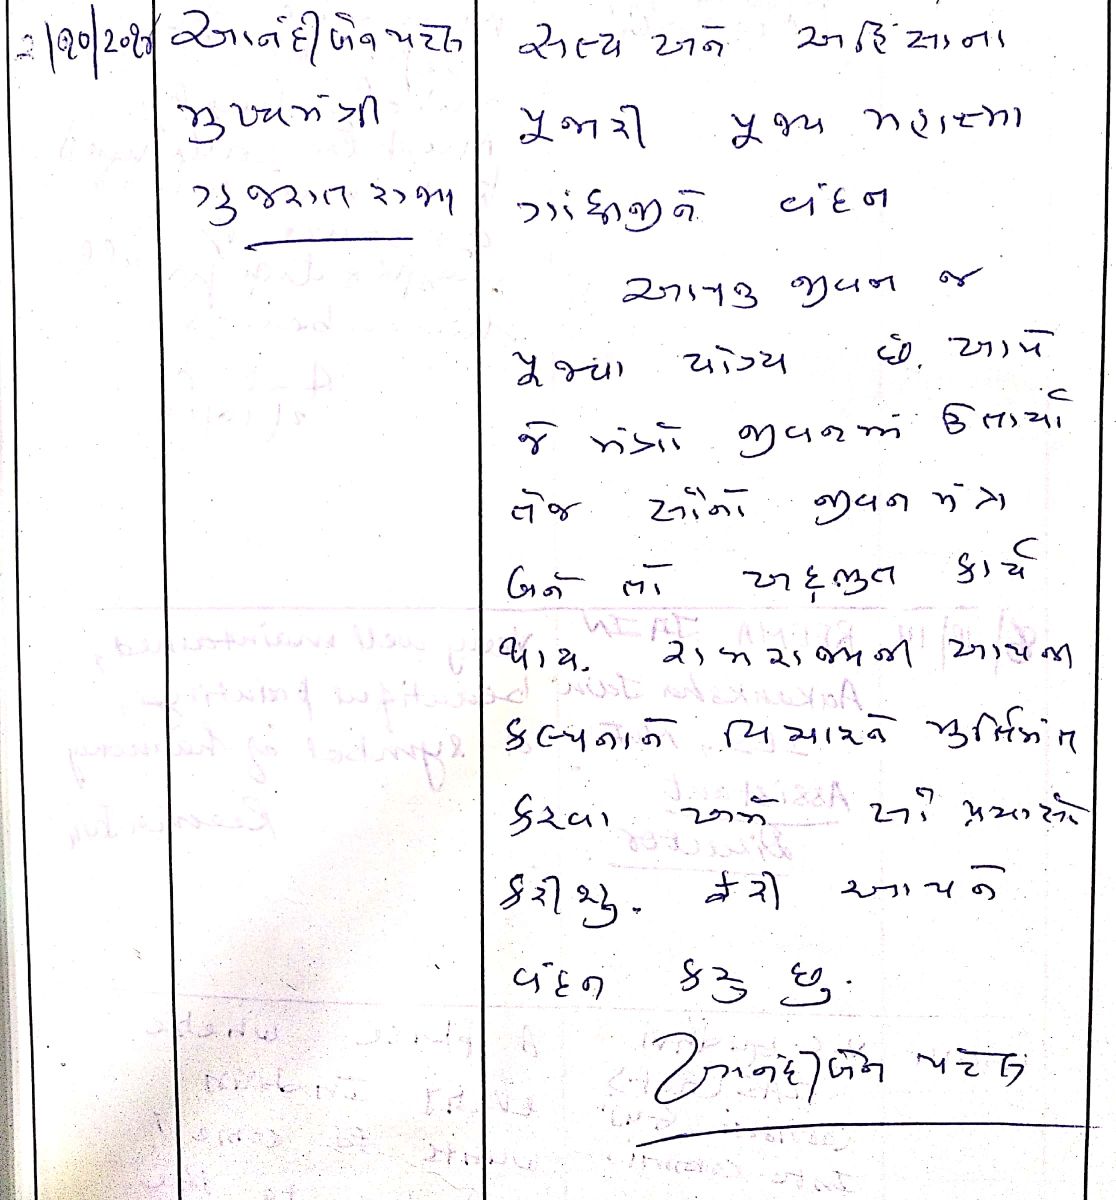 ૨/૧૦/૨૦૧૪
આનંદીબેન પટેલ
મુખ્યમંત્રી
ગુજરાત રાજ્ય
સત્ય અને અહિંસાના
પૂજારી પૂજ્ય મહાત્મા
ગાંધીજીને વંદન
આપનું જીવન જ
પૂજવા યોગ્ય છે. આપે
જે મંત્રો જીવનમાં ઉતાર્યા
તેજ સૌનો જીવન મંત્ર
બને તો અદ્દભુત કાર્ય
થાય. રામરાજ્યની આપની
કલ્પનાને વિચારને મુર્તિમંત
કરવા અમે સૌ પ્રયાસો
કરીશુ. ફરી આપને
વંદન કરુ છુ.
આનંદીબેન પટેલ